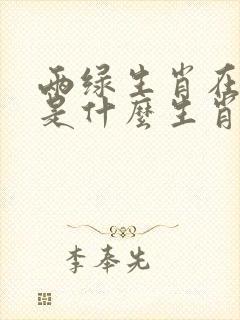 两绿生肖在
是什麼生肖
李奉先